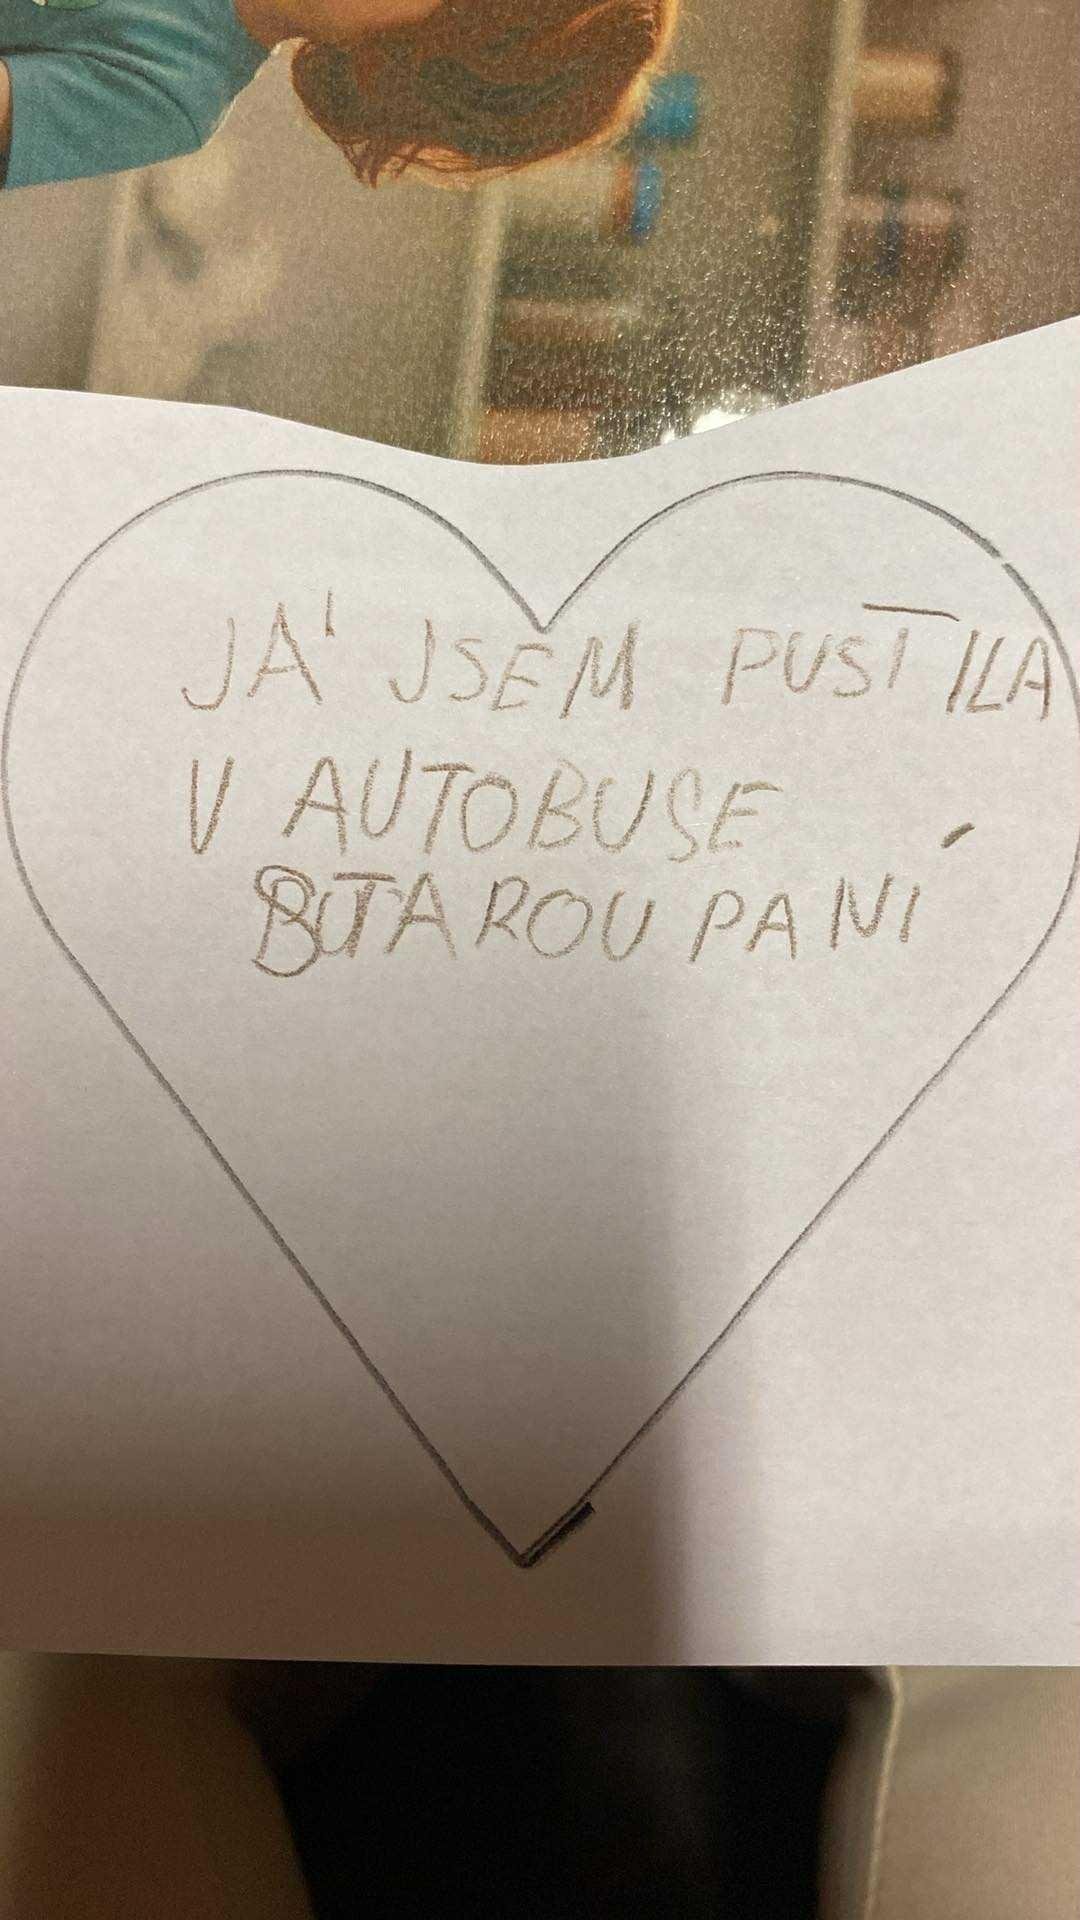 JÁ JSEM PUSTILA
V AUTOBUSE
STAROU PANÍ